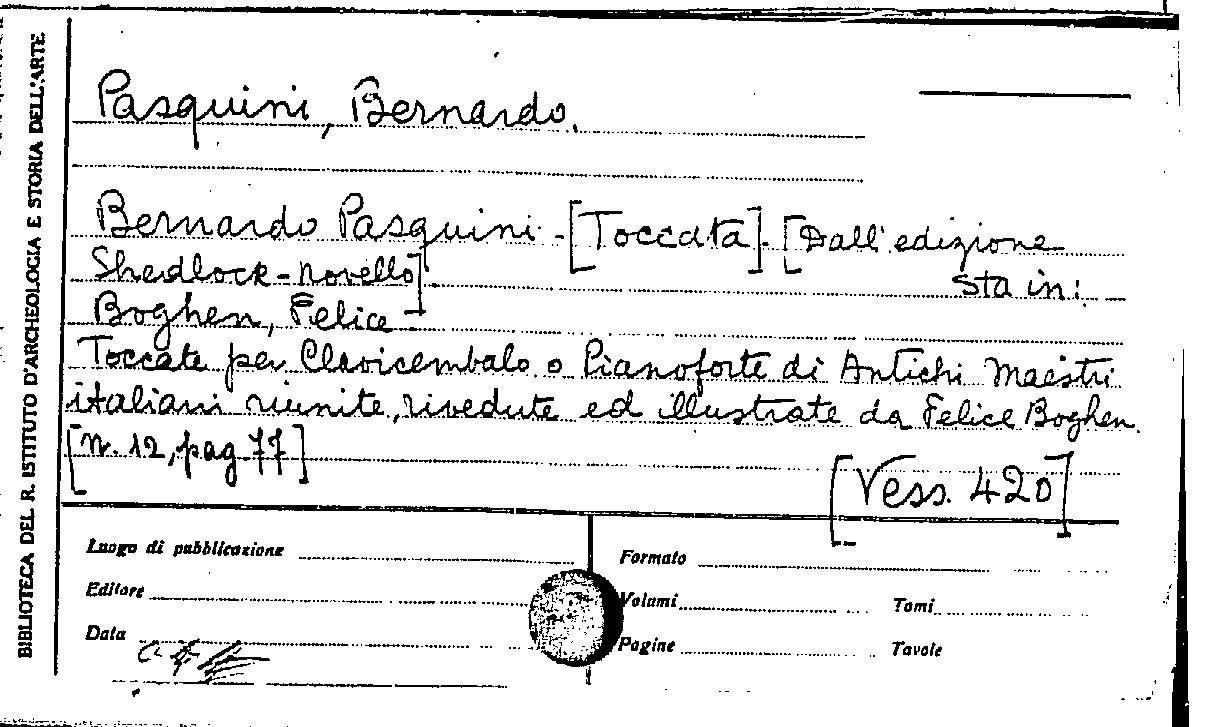 BIBLIOTECA DEL R. ISTITUTO D'ARCHEOLOGIA E STORIA DELL'ARTE
Pasquini, Bernardo.
Bernardo Pasquini - [Toccata] - [Dall'edizione
Shedlock - Novello]
Sta in:
Boghen, Felice
Toccate per Clavicembalo o Pianoforte di Antichi Maestri
italiani riunite, rivedute ed illustrate da Felice Boghen.
[n. 12, pag 77]
[Vess. 420]
Luogo di pubblicazione
Formato
Editore
Volumi
Tomi
Data
Pagine
Tavole